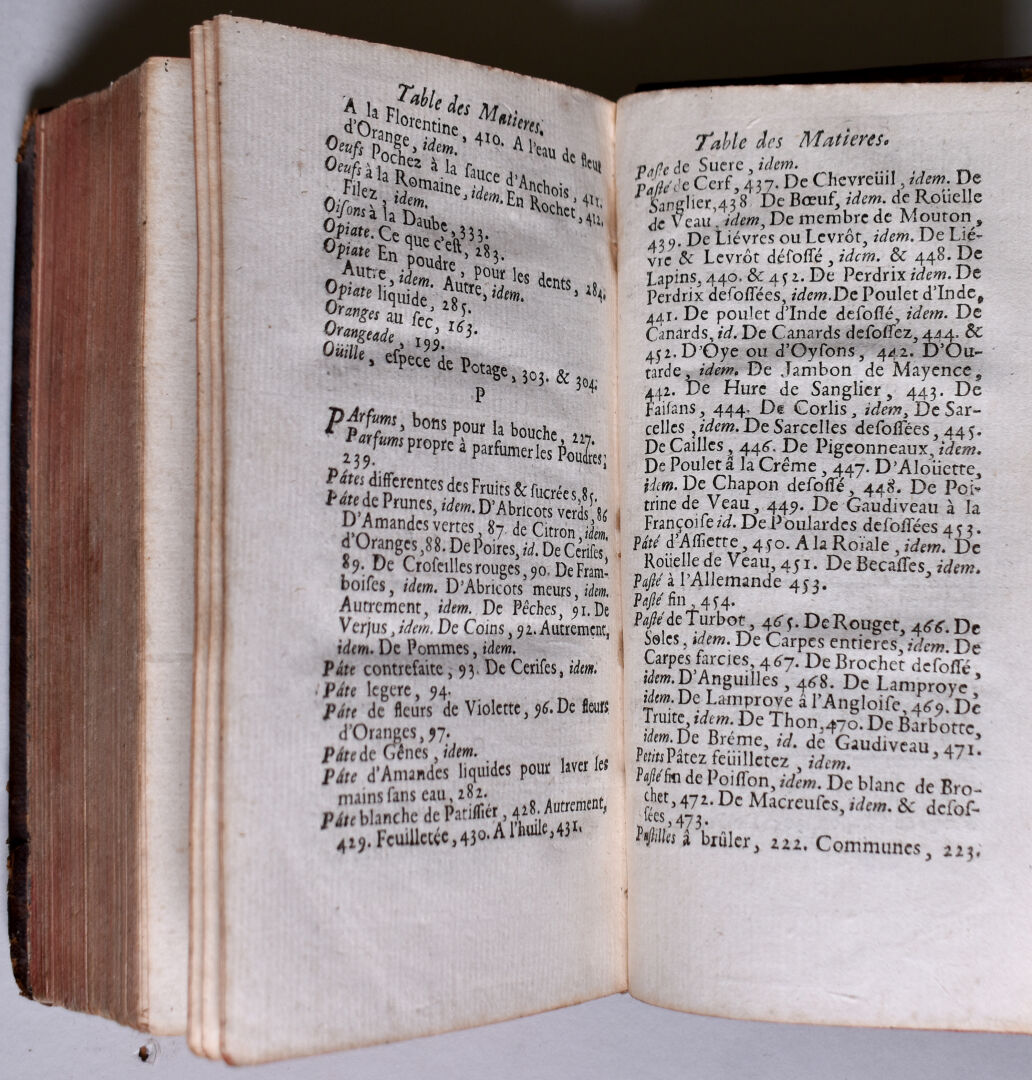 Table des Matieres.
A la Florentine, 410. A l'eau de fleur
d'Orange, idem.
Oeufs Pochez à la ſauce d'Anchois, 411.
Oeufs à la Romaine, idem. En Rochet, 412.
Filez, idem.
Oiſons à la Daube, 333.
Opiate. Ce que c'eſt, 283.
Opiate En poudre, pour les dents, 284.
Autre, idem. Autre, idem.
Opiate liquide, 285.
Oranges au ſec, 163.
Orangeade, 199.
Oüille, eſpece de Potage, 303. & 304.
P
PArfums, bons pour la bouche, 227.
Parfums propre à parfumer les Poudres;
239.
Pâtes differentes des Fruits & ſucrées, 85.
Pâte de Prunes, idem. D'Abricots verds, 86
D'Amandes vertes, 87. de Citron, idem.
d'Oranges, 88. De Poires, id. De Ceriſes,
89. De Croſeilles rouges, 90. De Fram-
boiſes, idem. D'Abricots meurs, idem.
Autrement, idem. De Pêches, 91. De
Verjus, idem. De Coins, 92. Autrement,
idem. De Pommes, idem.
Pâte contrefaite, 93. De Ceriſes, idem.
Pâte legere, 94.
Pâte de fleurs de Violette, 96. De fleurs
d'Oranges, 97.
Pâte de Gênes, idem.
Pâte d'Amandes liquides pour laver les
mains ſans eau, 282.
Pâte blanche de Patiſſier, 428. Autrement,
429. Feuilletée, 430. A l'huile, 431.
Table des Matieres.
Paſte de Suere, idem.
Paſté de Cerf, 437. De Chevreüil, idem. De
Sanglier, 438 De Bœuf, idem. de Roüelle
de Veau, idem, De membre de Mouton,
439. De Liévres ou Levrôt, idem. De Lié-
vre & Levrôt déſoſſé, idem. & 448. De
Lapins, 440. & 452. De Perdrix idem. De
Perdrix deſoſſées, idem. De Poulet d'Inde,
441. De poulet d'Inde deſoſſé, idem. De
Canards, id. De Canards deſoſſez, 444. &
452. D'Oye ou d'Oyſons, 442. D'Ou-
tarde, idem. De Jambon de Mayence,
442. De Hure de Sanglier, 443. De
Faiſans, 444. De Corlis, idem, De Sar-
celles, idem. De Sarcelles deſoſſées, 445.
De Cailles, 446. De Pigeonneaux, idem.
De Poulet â la Crême, 447. D'Aloüette,
idem. De Chapon deſoſſé, 448. De Poi-
trine de Veau, 449. De Gaudiveau à la
Françoiſe id. De Poulardes deſoſſées 453.
Pâté d'Aſſiette, 450. A la Roïale, idem. De
Roüelle de Veau, 451. De Becaſſes, idem.
Paſté à l'Allemande 453.
Paſté fin, 454.
Paſté de Turbot, 465. De Rouget, 466. De
Soles, idem. De Carpes entieres, idem. De
Carpes farcies, 467. De Brochet deſoſſé,
idem. D'Anguilles, 468. De Lamproye,
idem. De Lamproye â l'Angloiſe, 469. De
Truite, idem. De Thon, 470. De Barbotte,
idem. De Bréme, id. de Gaudiveau, 471.
Petits Pâtez feüilletez, idem.
Paſté fin de Poiſſon, idem. De blanc de Bro-
chet, 472. De Macreuſes, idem. & deſoſ-
ſées, 473.
Paſtilles â brûler, 222. Communes, 223.